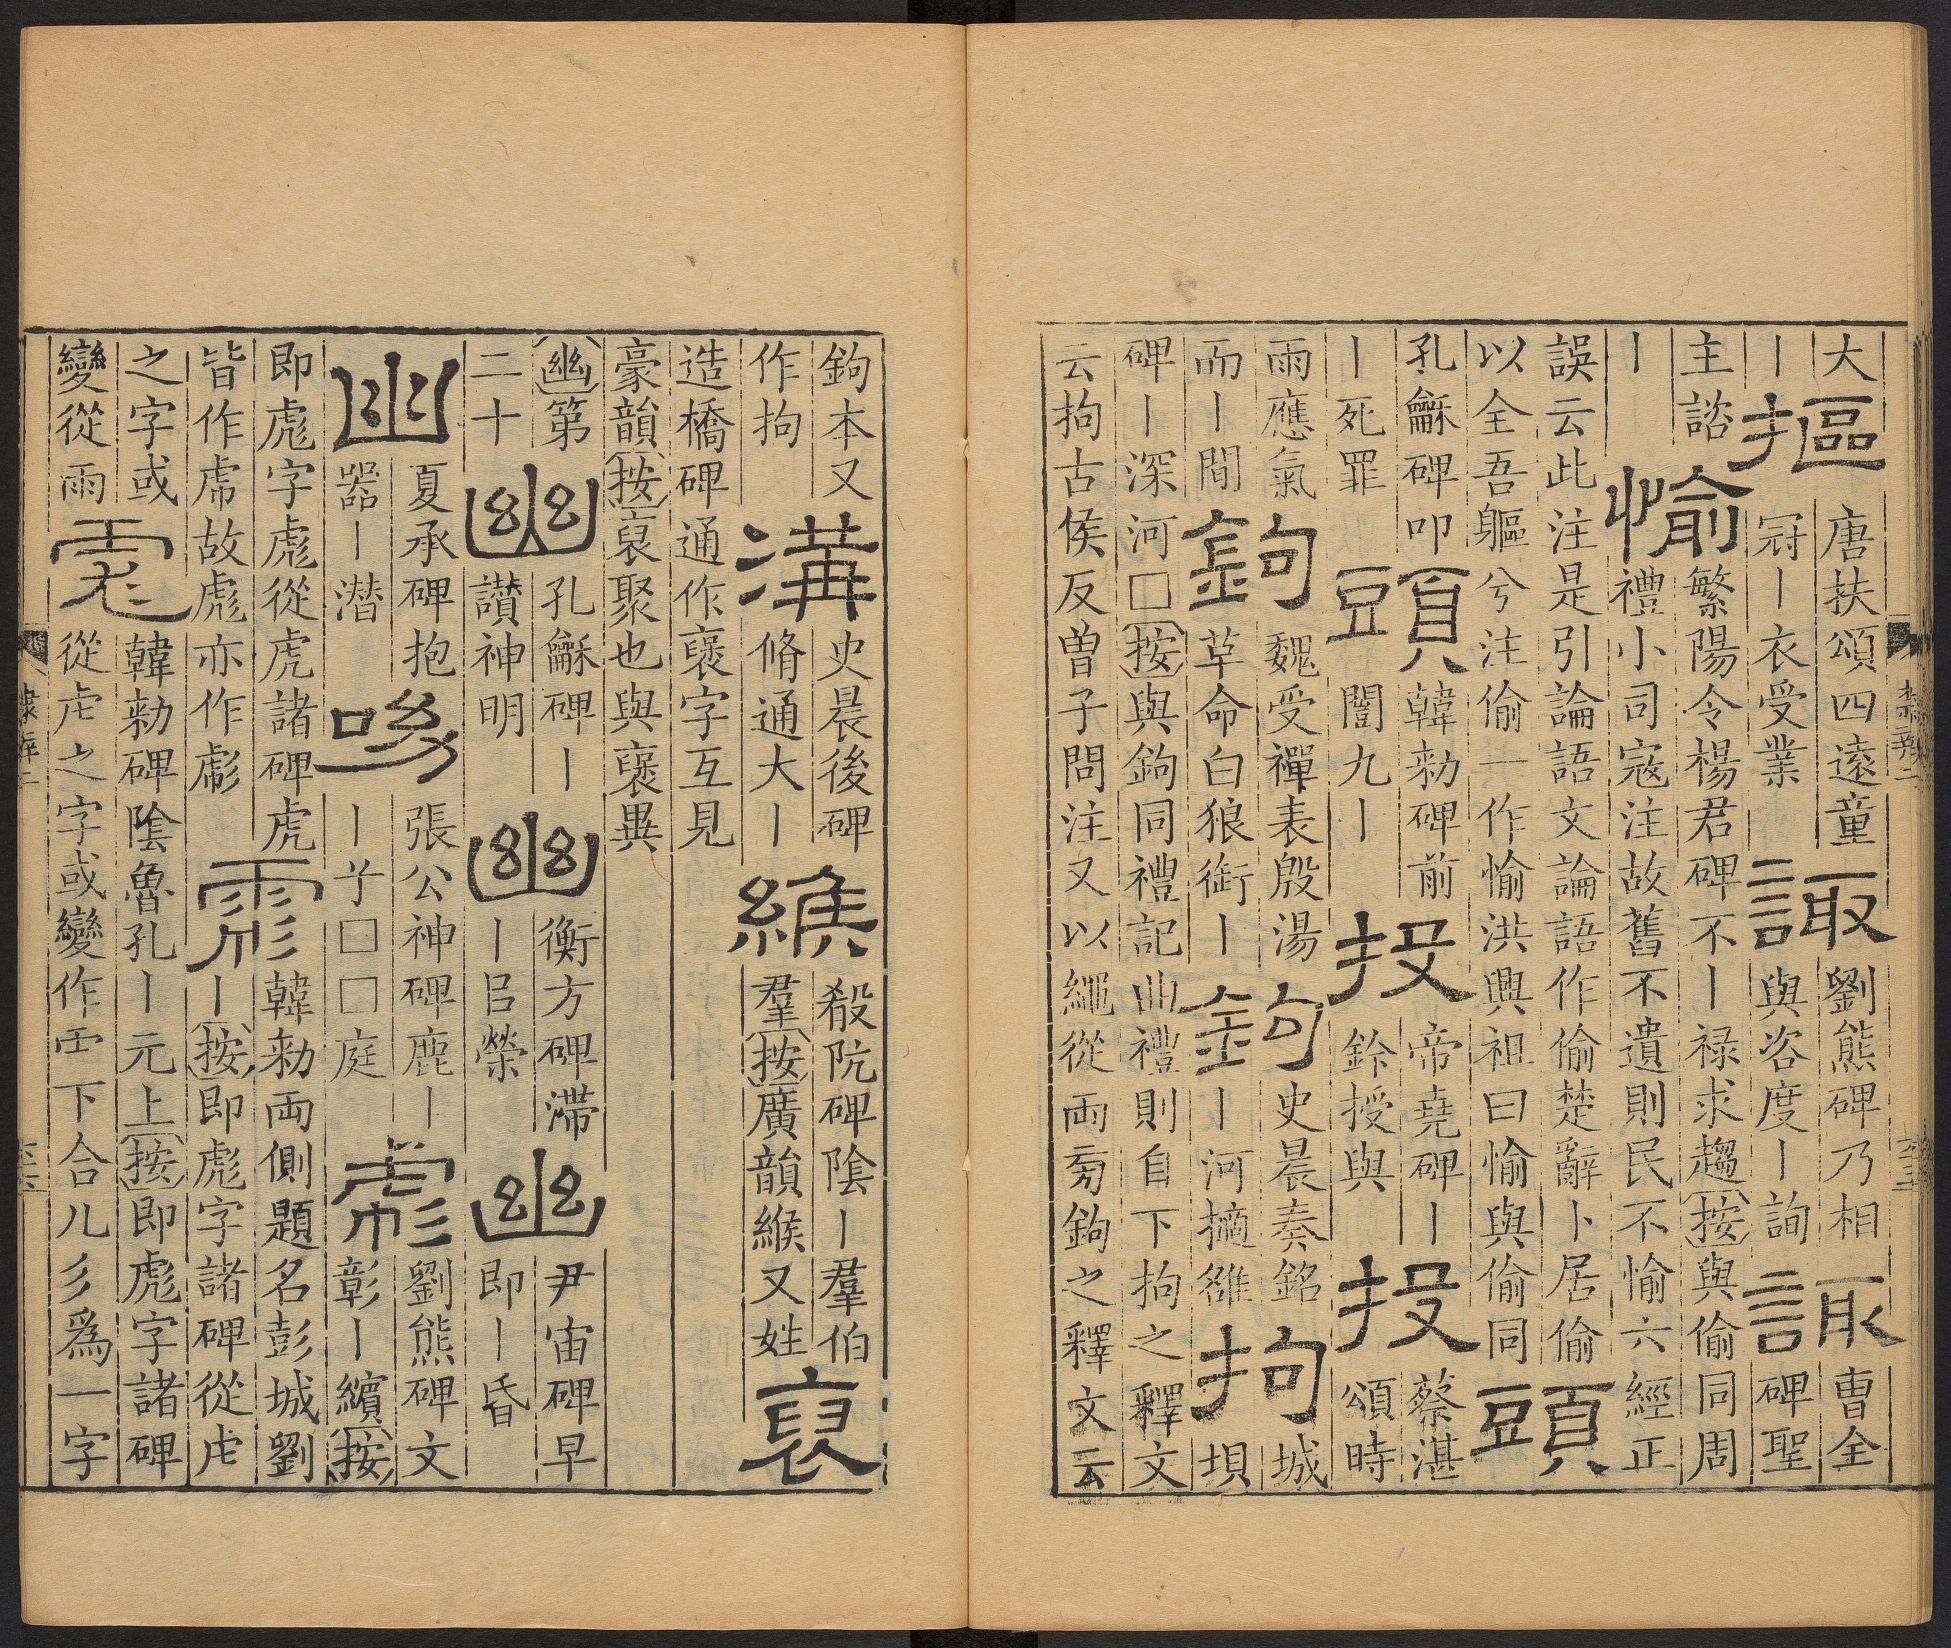 大
丨
摳
唐扶頌四遠童
冠丨衣受業
諏
劉熊碑乃相
與咨度丨詢
諏
曹全
碑聖
主諮
丨
愉
繁陽令楊君碑不丨禄求趨按與偷同周
禮小司寇注故舊不遺則民不愉六經正
誤云此注是引論語文論語作偷楚辭卜居偷
以全吾軀兮注偷一作愉洪興祖曰愉與偷同
頭
孔龢碑叩
丨死罪
頭
韓勑碑前
闓九丨
投
帝堯碑丨
鈐授與
投
蔡湛
頌時
雨應氣
而丨間
鉤
魏受禪表殷湯
革命白狼銜丨
鉤
史晨奏銘
丨河擿雒
拘
城
垻
碑丨深河□按與鉤同禮記曲禮則自下拘之釋文
云拘古侯反曾子問注又以繩從兩旁鉤之釋文云
鉤本又
作拘
溝
史晨後碑
脩通大丨
緱
殽阬碑陰丨羣伯
羣按廣韻緱又姓
裒
造橋碑通作褒字互見
豪韻按裒聚也與褒異
幽第
二十
幽
孔龢碑丨
讃神明
幽
衡方碑滯
丨呂榮
幽
尹宙碑早
即丨昏
幽
夏承碑抱
器丨潛
呦
張公神碑鹿丨
丨兮□□庭
彪
劉熊碑文
彰丨繽按
即彪字彪從虎諸碑虎
皆作乕故彪亦作彪
彪
韓勑兩側題名彭城劉
丨按即彪字諸碑從虍
之字或
變從雨
彪
韓勑碑陰魯孔丨元上按即彪字諸碑
從虍之字或變作雨下合儿彡爲一字